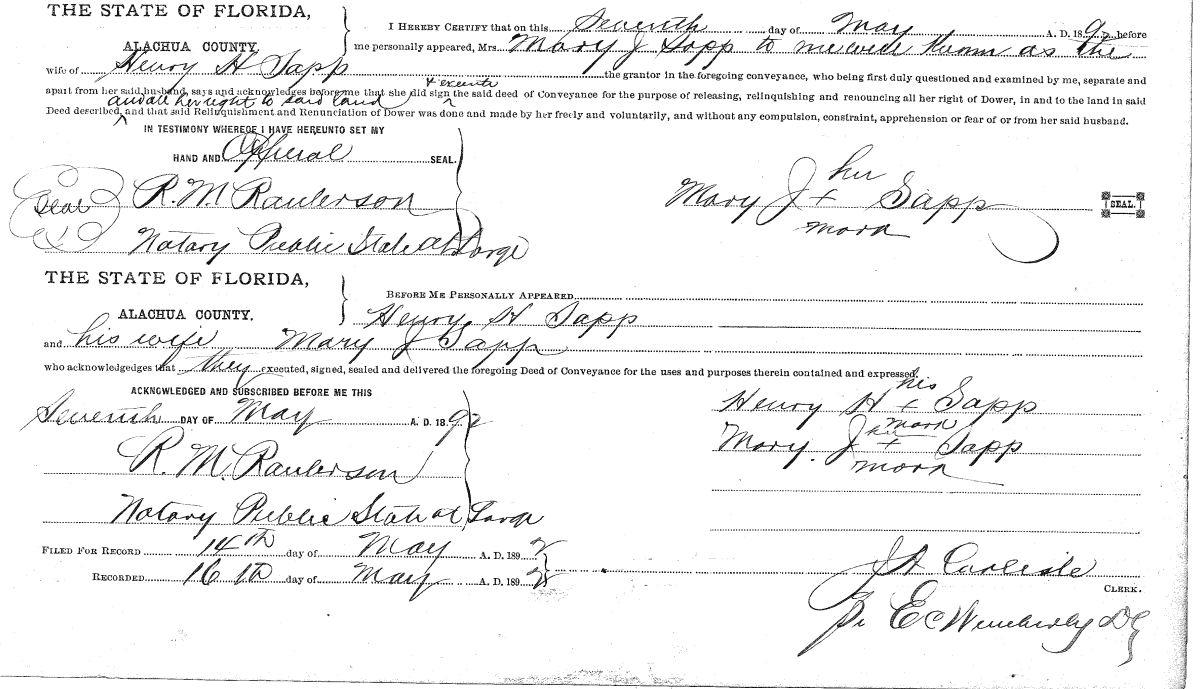 THE STATE OF FLORIDA,
ALACHUA COUNTY.
I HEREBY CERTIFY that on this Seventh day of May A. D. 189 before
me personally appeared, Mrs. Mary J Sapp to me well known as the
wife of Henry H Sapp the grantor in the foregoing conveyance, who being first duly questioned and examined by me, separate and
apart from her said husband, says and acknowledges before me that she did sign + execute the said deed of Conveyance for the purpose of releasing, relinquishing and renouncing all her right of Dower, in and to the land in said
and all her right to said land
Deed described, and that said Relinquishment and Renunciation of Dower was done and made by her freely and voluntarily, and without any compulsion, constraint, apprehension or fear of or from her said husband.
IN TESTIMONY WHEREOF I HAVE HEREUNTO SET MY
HAND AND Official SEAL.
Seal R. M. Raulerson
Notary Public State at Large
her
Mary J + Sapp SEAL.
mark
THE STATE OF FLORIDA,
ALACHUA COUNTY.
BEFORE ME PERSONALLY APPEARED
Henry H Sapp
and his wife Mary J Sapp
who acknowledges that they executed, signed, sealed and delivered the foregoing Deed of Conveyance for the uses and purposes therein contained and expressed.
ACKNOWLEDGED AND SUBSCRIBED BEFORE ME THIS
Seventh DAY OF May A. D. 1892
R. M. Raulerson
Notary Public State at Large
his
Henry H + Sapp
mark
her
Mary. J + Sapp
mark
FILED FOR RECORD 14th day of May A. D. 1892
RECORDED 16th day of May A. D. 1892
J A Carlisle
CLERK.
Pr E C Wimberly DC